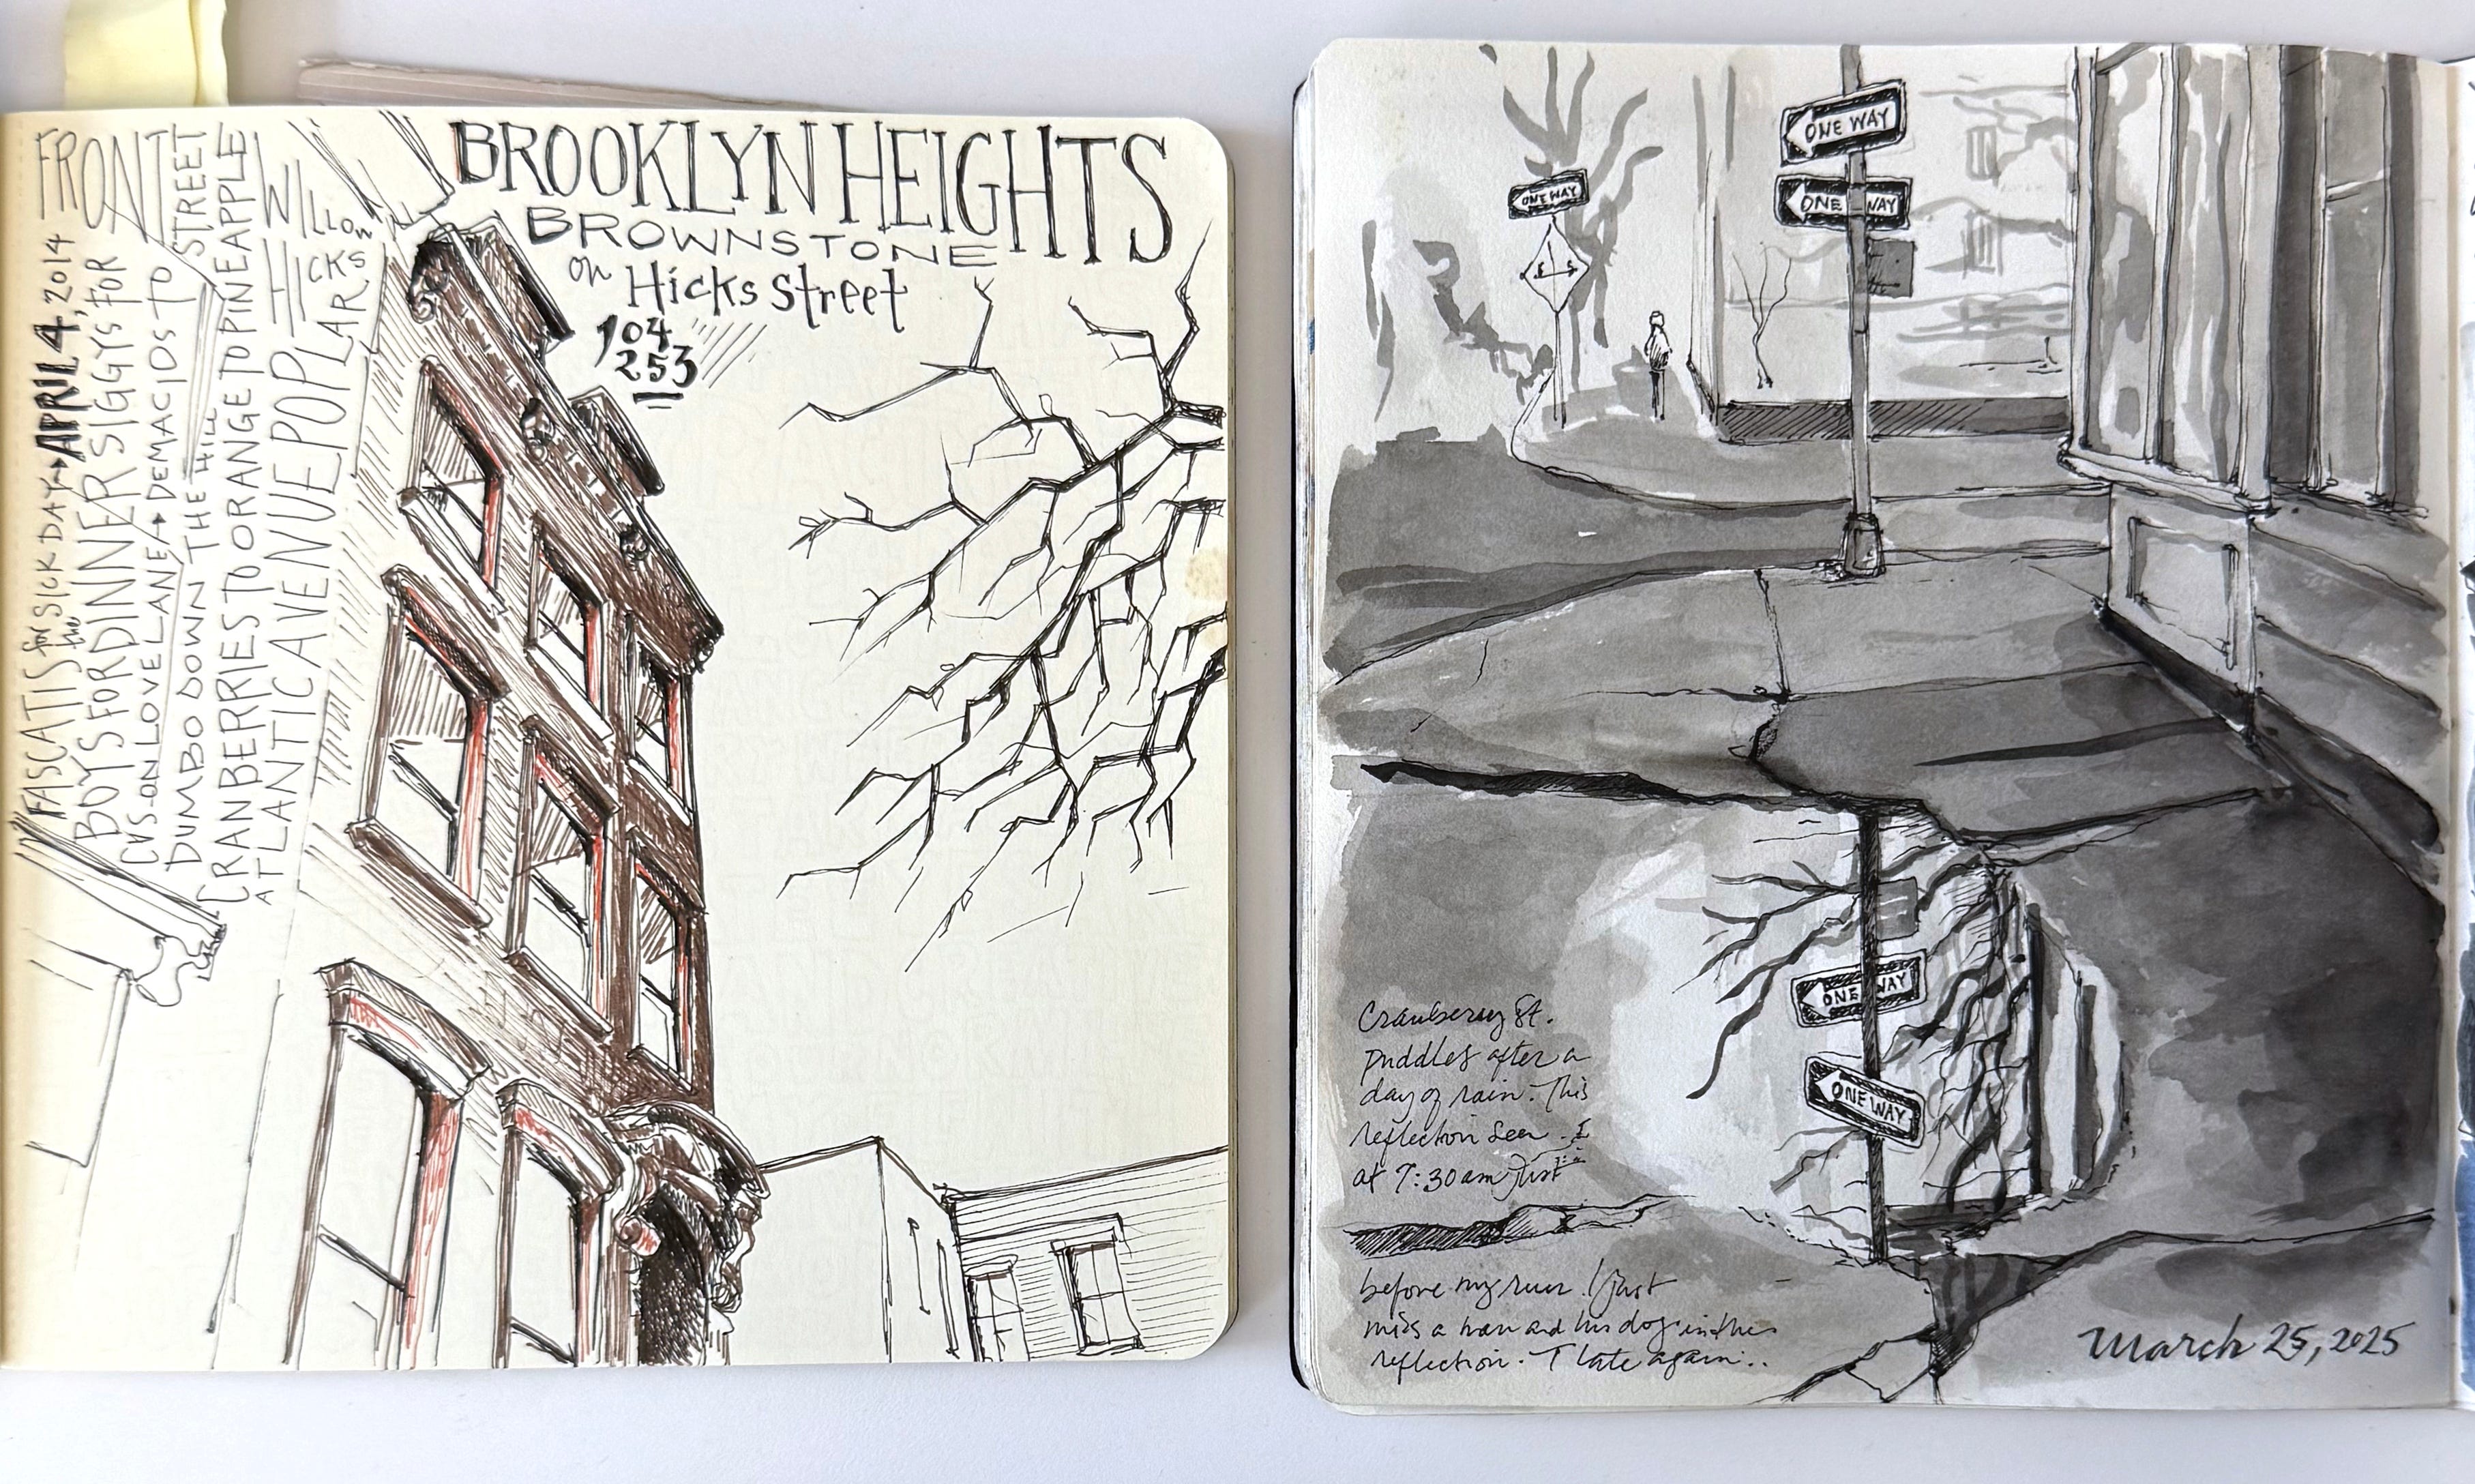 FASCATIS for SICK DAY → APRIL 4, 2014
BOYS FOR the DINNER SIGGYS FOR FRONT
CVS ON LOVE LANE → DEMACIOS TO STREET
DUMBO DOWN THE HILL
CRANBERRIES TO ORANGE TO PINEAPPLE
ATLANTIC AVENUE POPLAR HICKS WILLOW
BROOKLYN HEIGHTS
BROWNSTONE
on Hicks Street
104
253
ONE WAY
ONE WAY
ONE WAY
ONE WAY
ONE WAY
Cranberry St.
puddles after a
day of rain. This
reflection seen
at 7:30am Just
before my run. I just
miss a man and his dog in this
reflection. I late again..
March 25, 2025